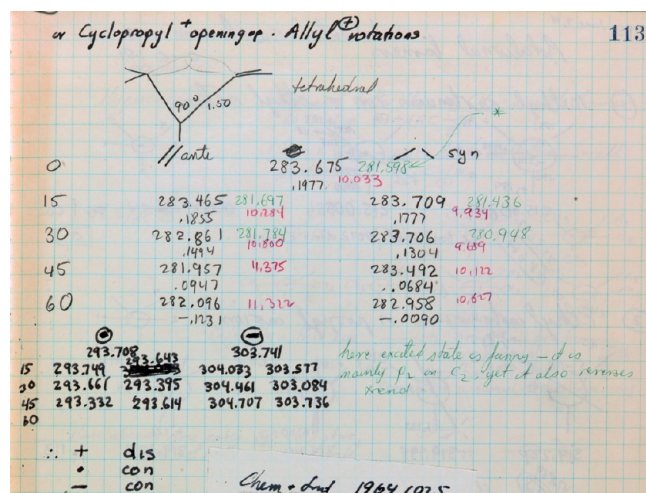 or Cyclopropyl + opening op. Allyl + rotations 113
90° 1.50 tetrahedral
*
// syn
0 283.675 281,898
.1977 10.033
15 283.465 281,697 283.709 281.436
.1855 10.284 .1777 9.934
30 282.861 281.784 283.706 280.948
.1494 10.800 .1304 9.689
45 281.957 11,375 283.492 10,122
.0947 .0684
60 282.096 11,322 282.958 10,627
-.1231 -.0090
+ −
293.708 303.741
293.643
15 293.749 304.033 303.577
30 293.661 293.395 304.461 303.084
45 293.332 293.614 304.707 303.736
60
here excited state is funny - it is
mainly p2 on C2, yet it also reverses
trend
∴ + dis
• con
− con
Chem + Ind 1964 1025